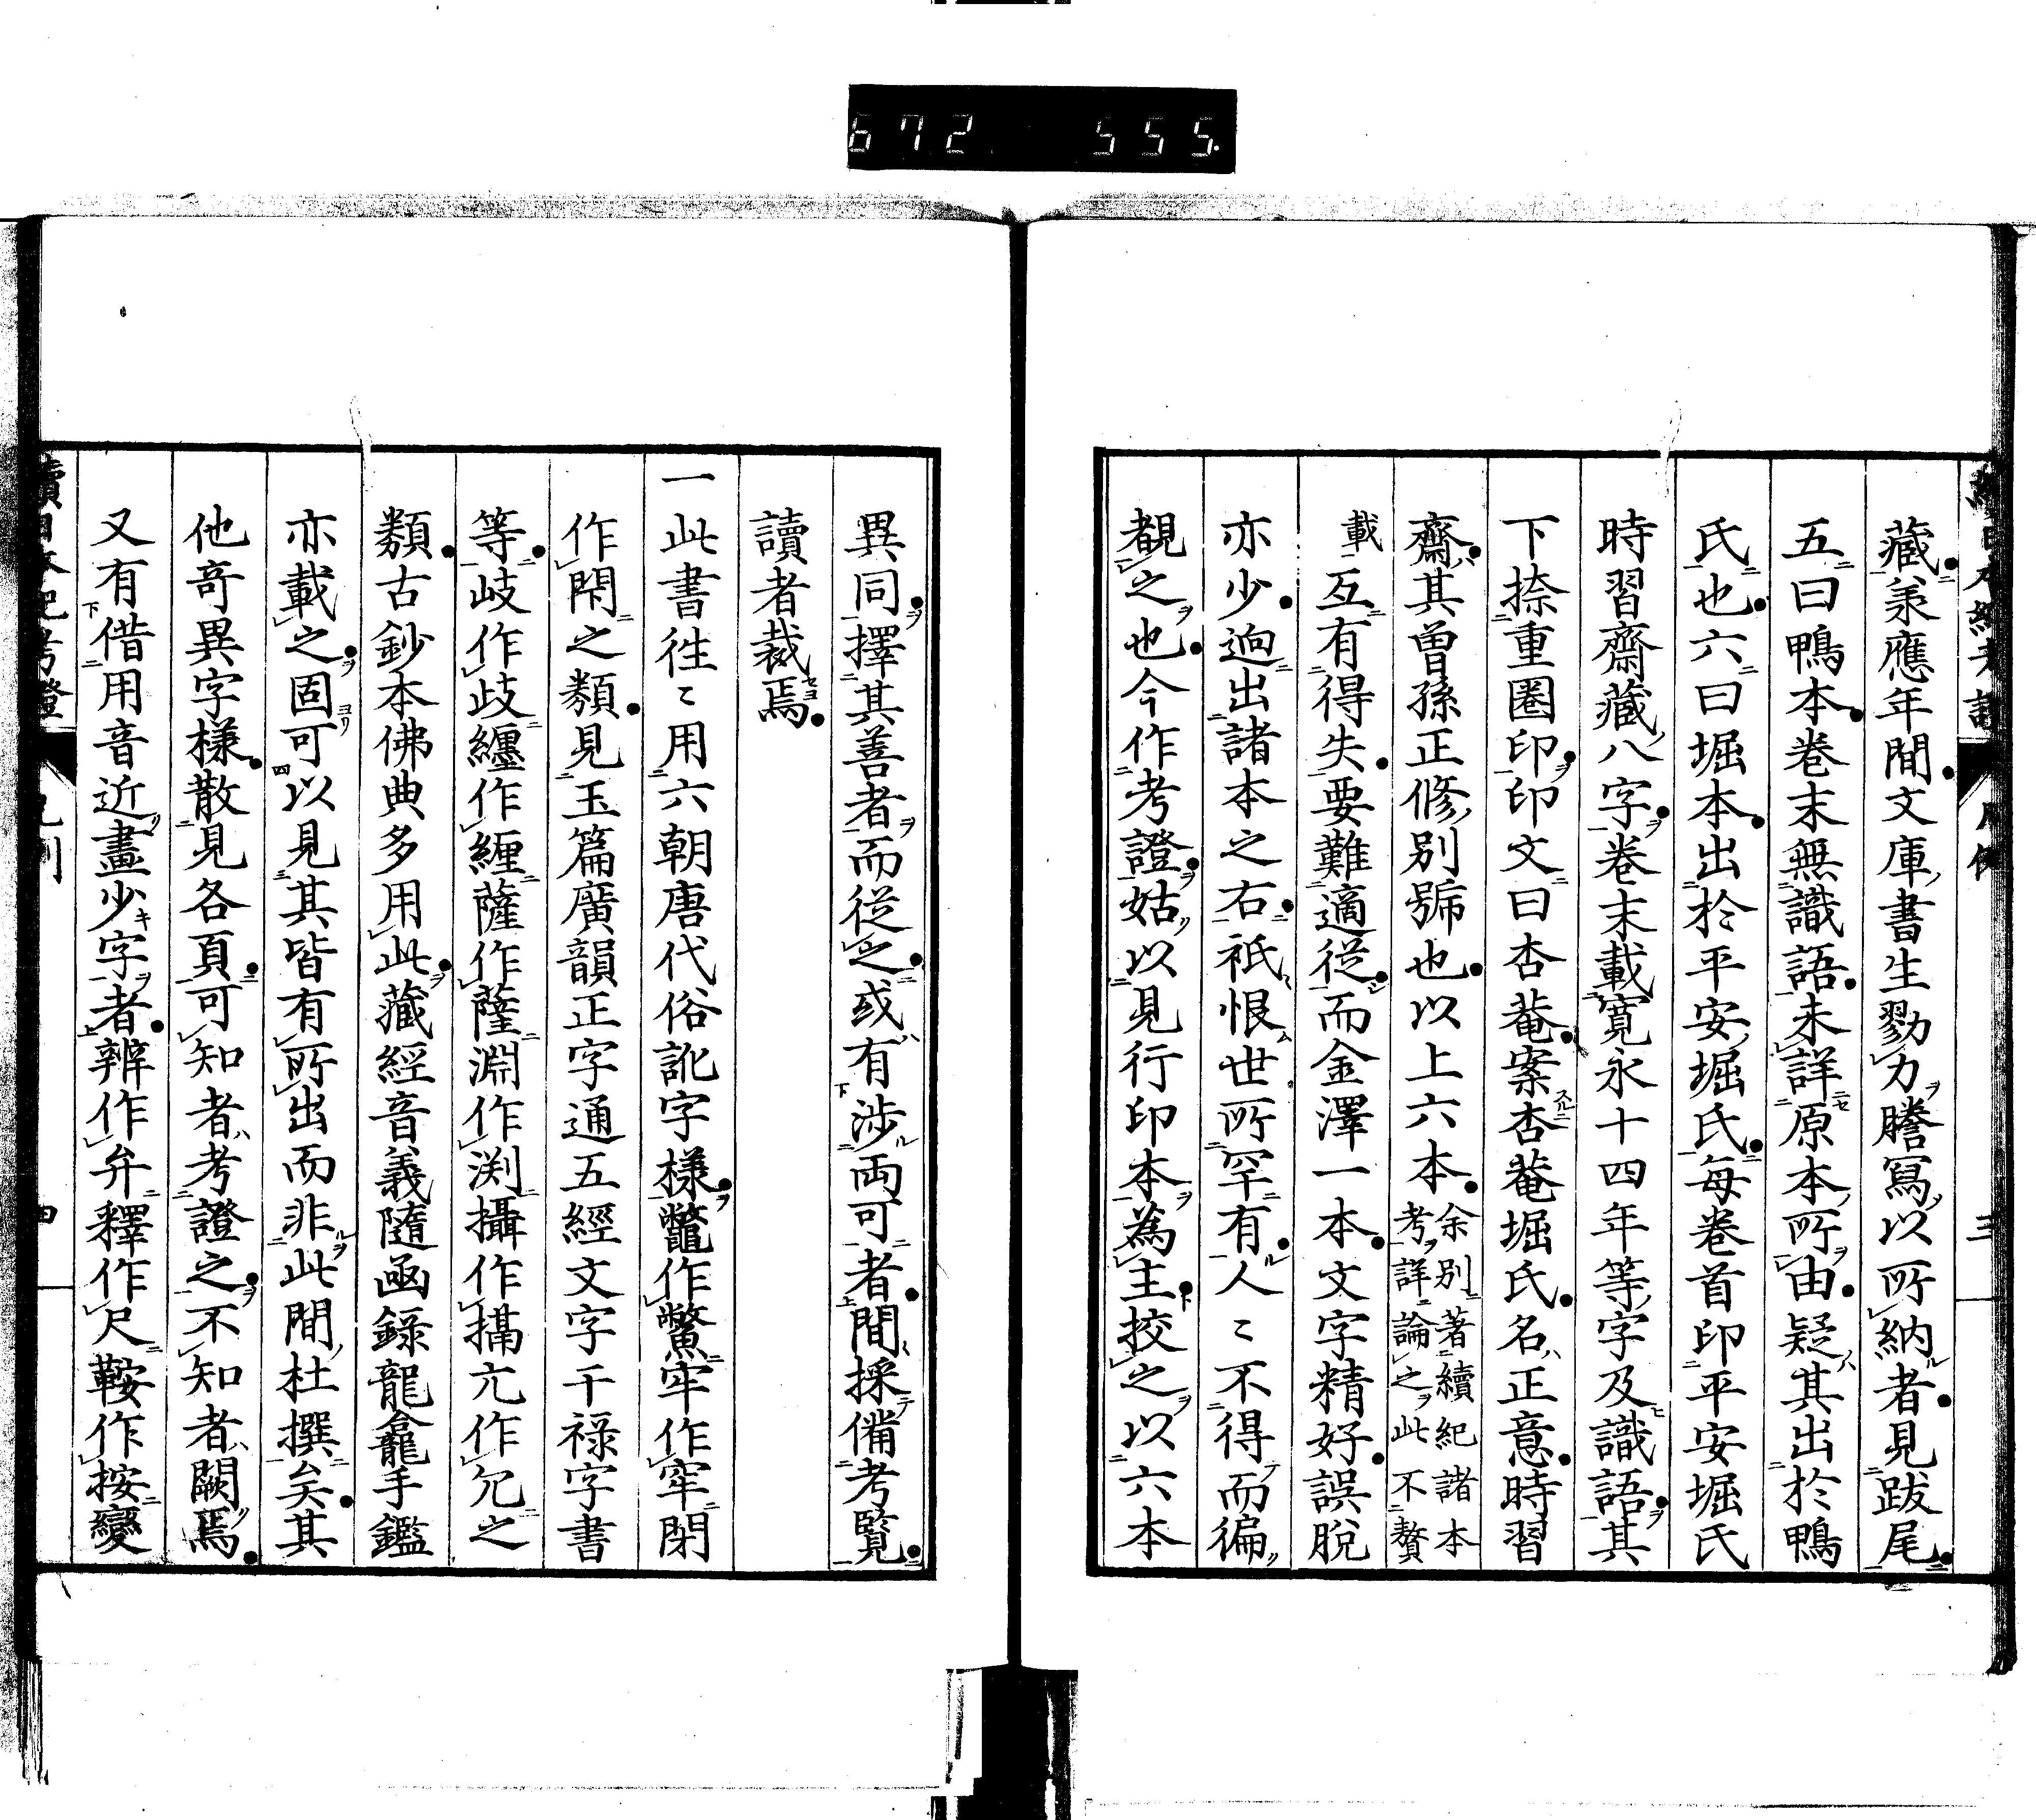 672 555
藏承應年間文庫書生勠力謄寫以所納者見跋尾
五曰鴨本卷末無識語未詳原本所由疑其出於鴨
氏也六曰堀本出於平安堀氏每卷首印平安堀氏
時習齋藏八字卷末載寬永十四年等字及識語其
下捺重圈印印文曰杏菴案杏菴堀氏名正意時習
齋其曾孫正修別號也以上六本余別著續紀諸本
考詳論之此不贅
載互有得失要難適從而金澤一本文字精好誤脫
亦少迥出諸本之右祇恨世所罕有人〻不得而徧
覩之也今作考證姑以見行印本為主挍之以六本
異同擇其善者而從之或有涉両可者間採備考覽
讀者裁焉
一此書徃〻用六朝唐代俗訛字樣鼈作鱉牢作窂閉
作閇之類見玉篇廣韻正字通五經文字干禄字書
等岐作歧纏作緾薩作薩淵作渕攝作㨪亢作冗之
類古鈔本佛典多用此藏經音義隨函錄龍龕手鑑
亦載之固可以見其皆有所出而非此間杜撰矣其
他奇異字樣散見各頁可知者考證之不知者闕焉
又有借用音近畫少字者辨作弁釋作尺鞍作按變